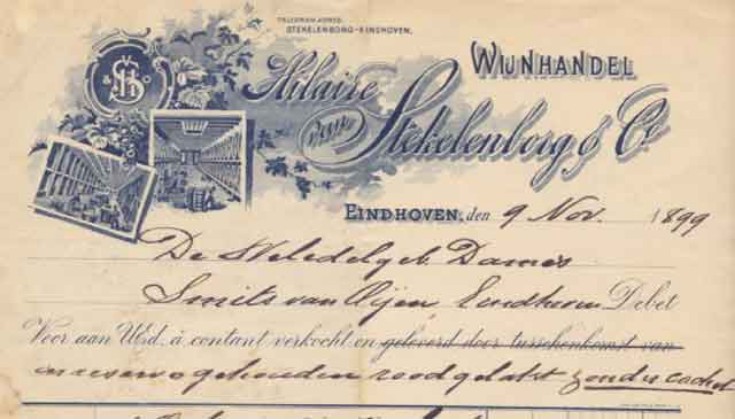 TELEGRAM-ADRES:
STEKELENBORG-EINDHOVEN.
WIJNHANDEL
Hilaire
van Stekelenborg & Co
EINDHOVEN, den 9 Nov. 1899
De WelEdelgeb. Dames
Smits van Oijen, Eindhoven Debet
Voor aan UEd. à contant verkocht en geleverd door tusschenkomst van
in reserve gehouden rood gelakt zonder cachet